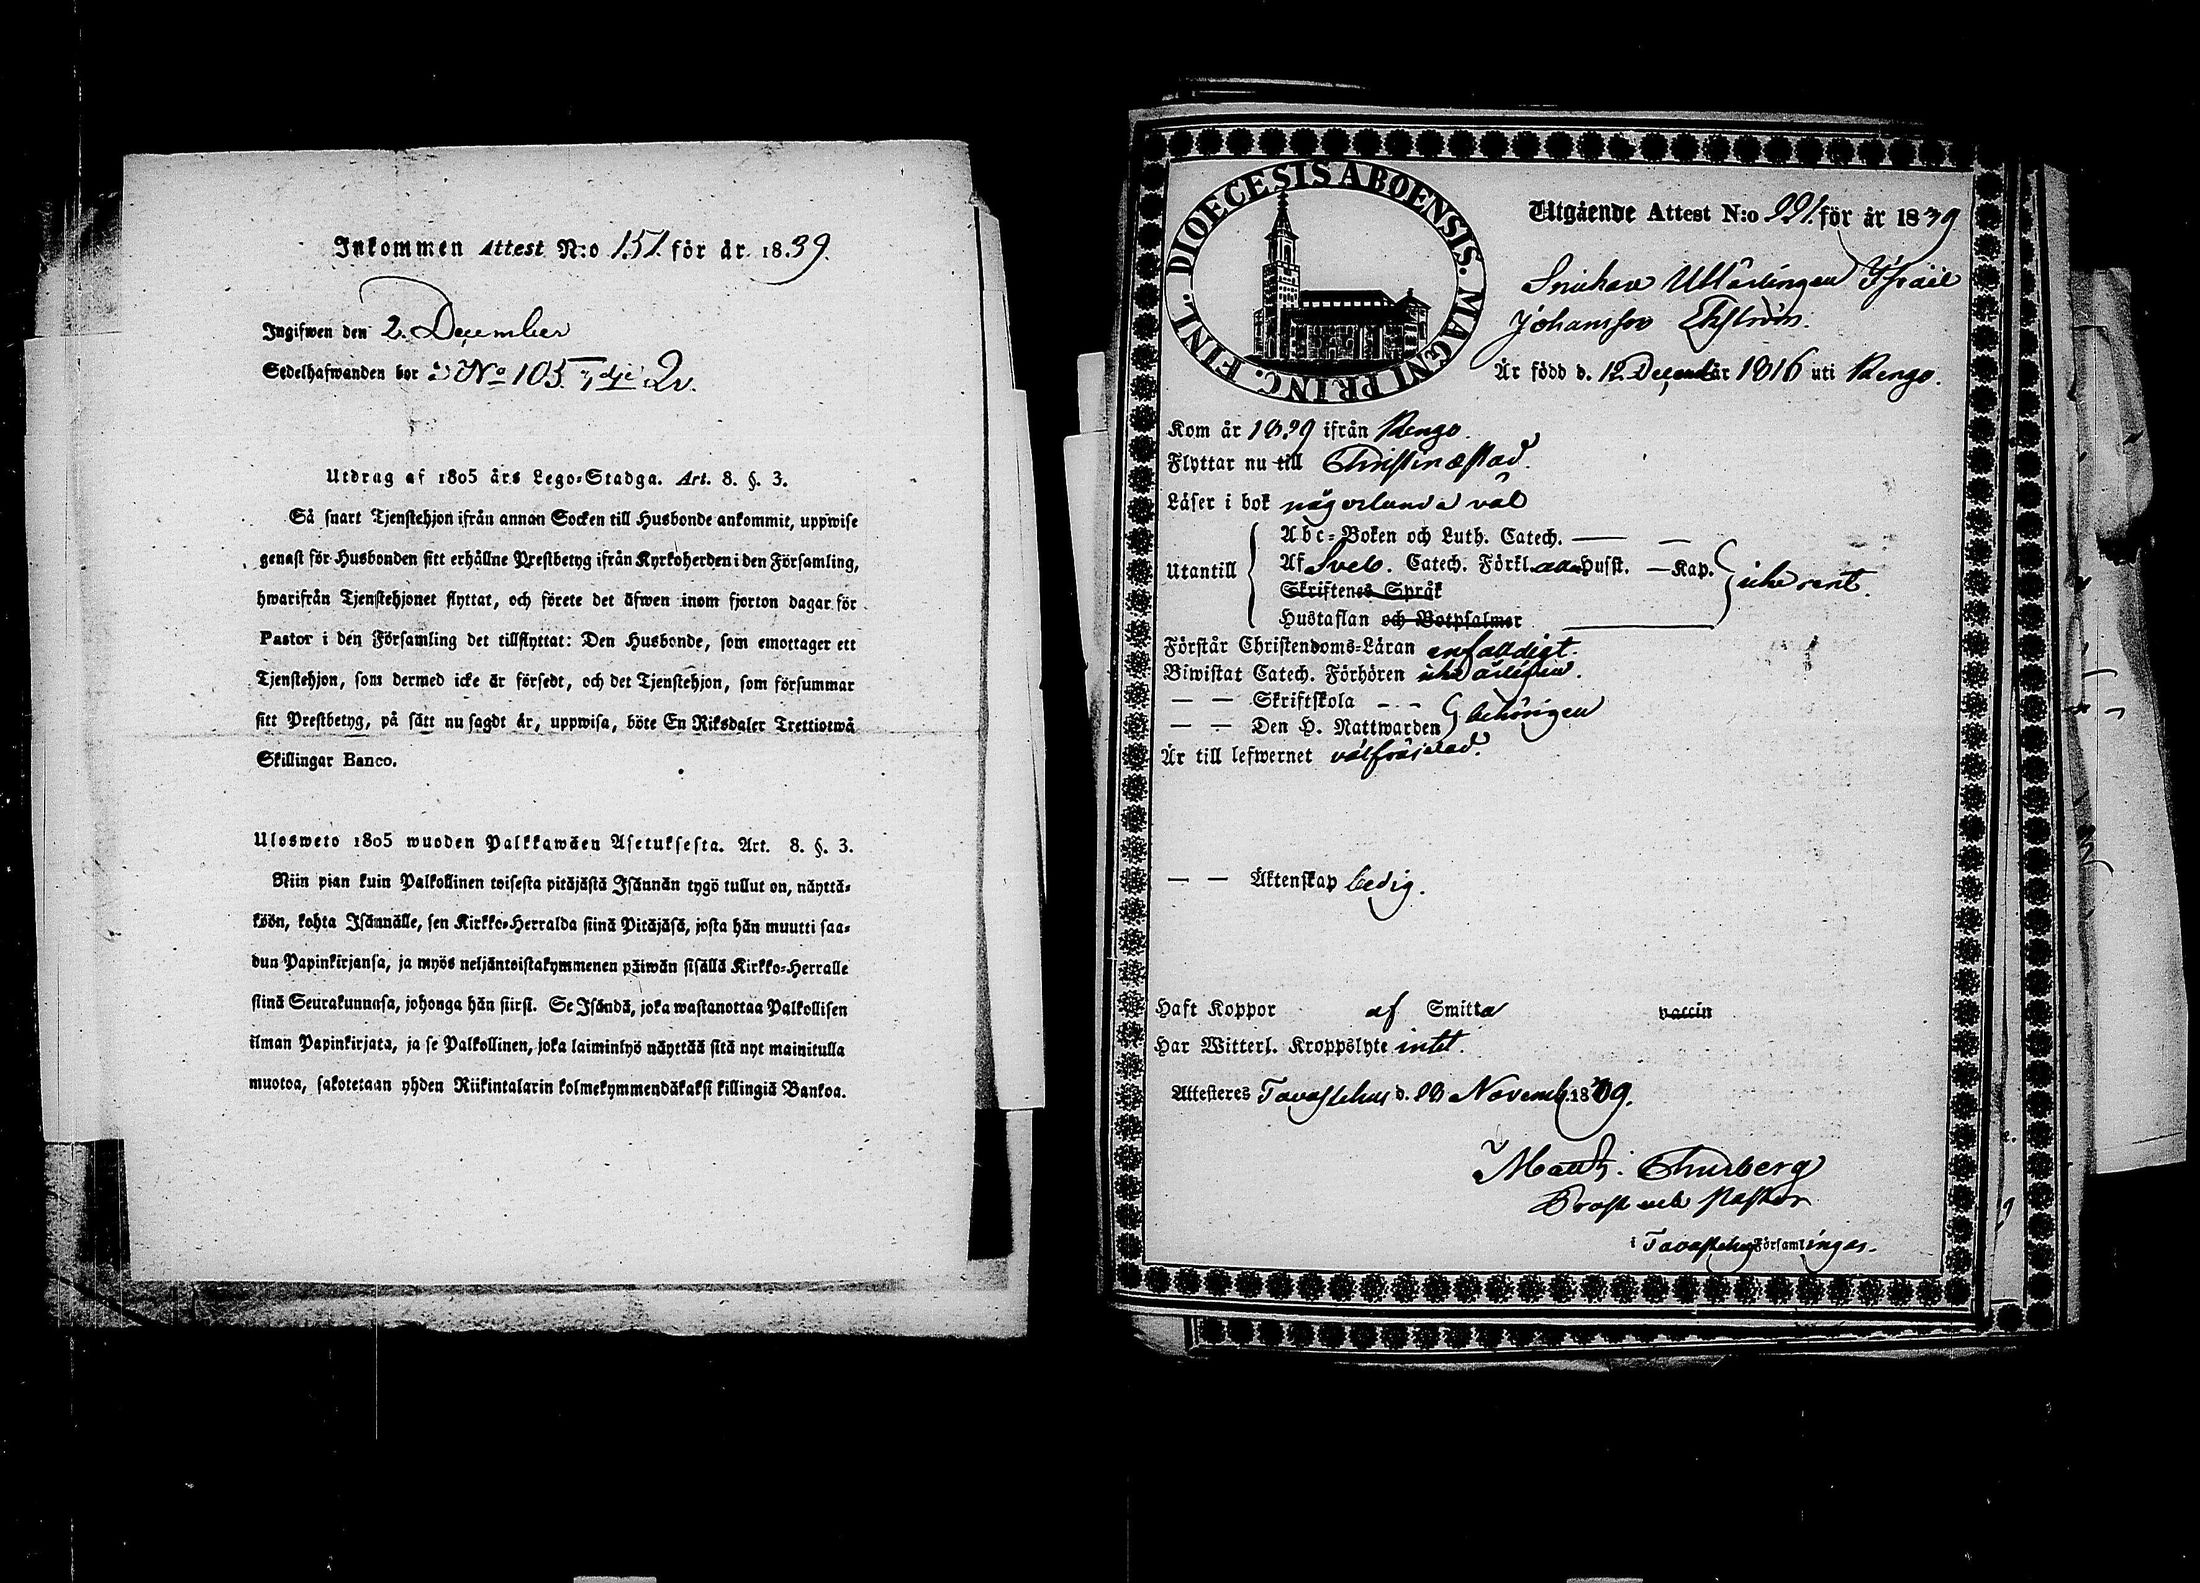 Inkommen Attest N:o 151. för år 1839.
Ingifwen den 2. December
Sedelhafwanden bor i No 105 2v.
Utdrag af 1805 års Lego-Stadga. Art. 8. §. 3.
Så snart Tjenstehjon ifrån annan Socken till Husbonde ankommit, uppwise
genast för Husbonden sitt erhållne Prestbetyg ifrån Kyrkoherden i den Församling,
hwarifrån Tjenstehjonet flyttat, och förete det äfwen inom fjorton dagar för
Pastor i den Församling det tillflyttat: Den Husbonde, som emottager ett
Tjenstehjon, som dermed icke är försedt, och det Tjenstehjon, som försummar
sitt Prestbetyg, på sätt nu sagdt är, uppwisa, böte En Riksdaler Trettiotwå
Skillingar Banco.
Ulosweto 1805 wuoden Palkkawäen Asetuksesta. Art. 8. §. 3.
Niin pian kuin Palkollinen toisesta pitäjästä Isännän tygö tullut on, näyttä-
köön, kohta Isännälle, sen Kirkko-Herralda siinä Pitäjäsä, josta hän muutti saa-
dun Papinkirjansa, ja myös neljäntoistakymmenen päiwän sisällä Kirkko-Herralle
siinä Seurakunnasa, johonga hän siirsi. Se Isändä, joka wastanottaa Palkollisen
ilman Papinkirjata, ja se Palkollinen, joka laiminlyö näyttää sitä nyt mainitulla
muotoa, sakotetaan yhden Riikintalarin kolmekymmendäkaksi killingiä Bankoa.
DIOECESIS ABOENSIS. MAGNI PRINC. FINL.
Utgående Attest N:o 991. för år 1839
Snickare Utlärlingen Israël
Johansson Ekström.
Är född d. 12 Decemb. år 1816 uti Rengo.
Kom år 1839 ifrån Rengo.
Flyttar nu till Christinæstad.
Läser i bok någorlunda väl
Abc-Boken och Luth. Catech. — —
Utantill Af Sveb. Catech. Förkl. alla Husst. — Kap. icke rent.
Skriftenes Språk
Hustaflan och Botpsalmer
Förstår Christendoms-Läran enfalldigt.
Biwistat Catech. Förhören icke årligen.
— — Skriftskola - -
— — Den H. Nattwarden behörigen
Är till lefwernet välfräjdad.
— — Äktenskap ledig.
Haft Koppor af Smitta vaccin
Har Witterl. Kroppslyte intet.
Attesteres Tavastehus d. 23 Novemb. 1839.
Thurberg
Prost och Pastor
i Tavastehus Församlingar.